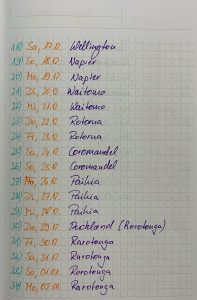 18) Sa, 17.12. Wellington
19) So, 18.12. Napier
20) Mo, 19.12. Napier
21) Di, 20.12. Waitomo
22) Mi, 21.12. Waitomo
23) Do, 22.12. Rotorua
24) Fr, 23.12. Rotorua
25) Sa, 24.12. Coromandel
26) So, 25.12. Coromandel
27) Mo, 26.12. Paihia
28) Di, 27.12. Paihia
29) Mi, 28.12. Paihia
30) Do, 29.12. Auckland (Rarotonga)
31) Fr, 30.12. Rarotonga
32) Sa, 31.12. Rarotonga
33) So, 01.01. Rarotonga
34) Mo, 02.01. Rarotonga